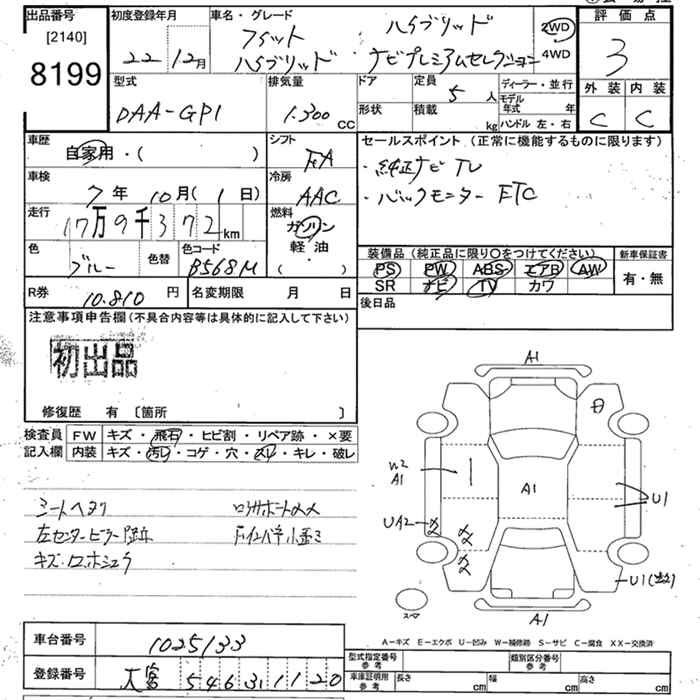 出品番号
[2140]
8199
初度登録年月
22 12月
車名・グレード
フィット ハイブリッド
ハイブリッド ナビプレミアムセレクション
2WD
4WD
評価点
3
外装 内装
C C
型式
DAA-GP1
排気量
1.300 CC
ドア
形状
定員
5 人
積載
kg
ディーラー・並行
モデル年式 年
ハンドル 左・右
車歴
自家用・( )
シフト
FA
セールスポイント(正常に機能するものに限ります)
・純正ナビ TV
・バックモニター ETC
車検
7年 10月(1日)
冷房
AAC
走行
17万9千372km
燃料
ガソリン
軽・油
( )
色
ブルー
色替
色コード
B568M
装備品(純正品に限り○をつけてください)
PS PW ABS エアB AW
SR ナビ TV カワ
新車保証書
有・無
R券
10.810 円
名変期限 月 日
後日品
注意事項申告欄(不具合内容等は具体的に記入して下さい)
初出品
修復歴 有〔箇所 〕
検査員
記入欄
FW キズ・飛石・ヒビ割・リペア跡・×要
内装 キズ・汚レ・コゲ・穴・スレ・キレ・破レ
シートヘタリ
A1
W2
A1
A1
U1
UA2
U1
スペア
A1
A-キズ E-エクボ U-凹み W-補修跡 S-サビ C-腐食 XX-交換済
車台番号
1025133
登録番号
大宮 546 31120
型式指定番号
参考
類別区分番号
参考
車庫証明用
参考
長さ cm
幅 cm
高さ cm